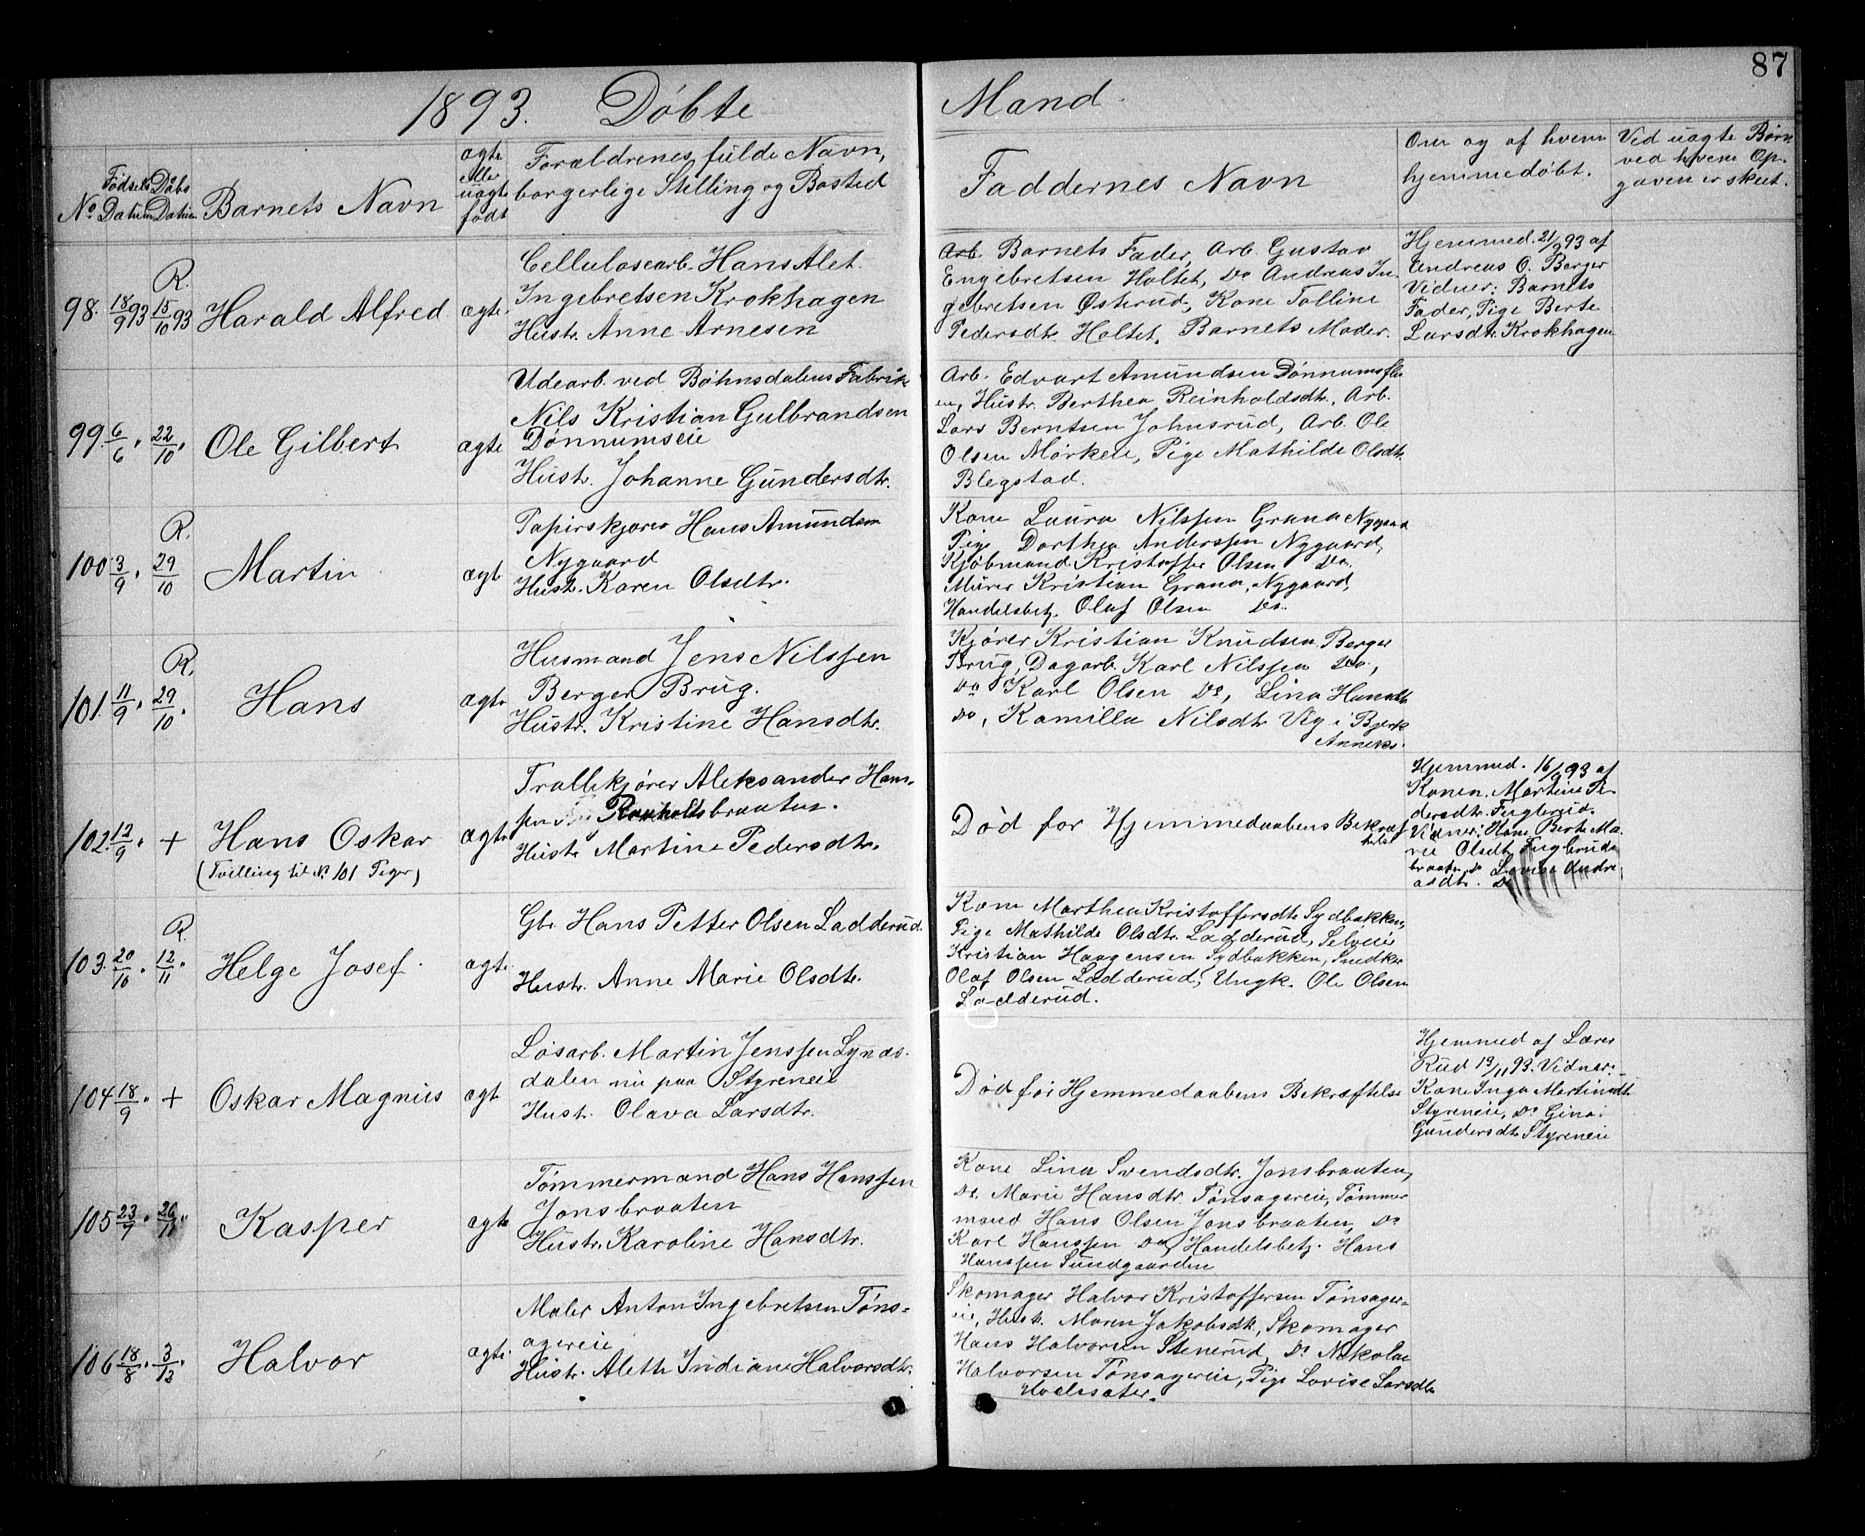 87
1893. Døbte
Mand.
No
Fødsels Datum
Døbs Datum
Barnets Navn
ægte eller uægte født
Forældrenes fulde Navn,
borgerlige Stilling og Bosted
Faddernes Navn
Om og af hvem
hjemmedøbt.
Ved uægte Børn
ved hvem Op-
gaven er skeet.
R.
98. 18/9 93 15/10 93 Harald Alfred ægte.
Cellulosearb. Hans Alet.
Ingebretsen Krokhagen
Hustr. Anne Arnesen
Arb. Barnets Fader, Arb. Gustav
Engebretsen Holtet, Do Andreas In-
gebretsen Østerud, Kone Tolline
Pedersdtr. Holtet, Barnets Moder.
Hjemmed. 21/9 93 af
Andreas O. Berger
Vidner: Barnets
Fader, Pige Berte
Larsdtr. Krokhagen
99. 6/6 " 22/10 " Ole Gilbert ægte
Udearb. ved Bøhnsdalens Fabrik
Nils Kristian Gulbrandsen
Dønnumseie
Hustr. Johanne Gundersdtr.
Arb. Edvart Amundsen Dønnumsfla
en, Hustr. Berthea Reinholdsdtr, Arb.
Lars Berntsen Johnsrud, Arb. Ole
Olsen Mørkeie, Pige Mathilde Olsdtr.
Blegstad.
R.
100. 3/9 " 29/10 Martin ægt
Papirskjører Hans Amundsen
Nygaard
Hustr. Karen Olsdtr.
Kone Laura Nilssen Grana Nygaard
Pige Dorthea Anderssen Nygaard,
Kjøbmand Kristoffer Olsen Do.
Murer Kristian Grana, Nygaard,
Handelsbetj. Olaf Olsen Do.
R.
101. 11/9 " 29/10 " Hans ægte
Husmand Jens Nilssen
Berger Brug.
Hustr. Kristine Hansdtr.
Kjører Kristian Knudsen Berger
Brug, Dagarb. Karl Nilssen Do.,
Do Karl Olsen Do, Lina Hansdtr
Do, Kamilla Nilsdtr Vig i Bjerk
Anneks.
102. 12/9 " + Hans Oskar ægte
(Tvilling til No 101 Piger)
Trallekjører Aleksander Hans-
sen Ronholdsbraaten.
Hustr Martine Pedersdtr.
Død før Hjemmedaabens Bekræf
telse
Hjemmed. 16/9 93 af
Konen Martine Pe
dersdtr. Fuglerud.
Vidner: Kone Berte Ma-
rie Olsdtr Fuglerud-
braaten, Do Lovise Andre
asdtr. Do
R.
103. 20/10 " 12/11 " Helge Josef. ægte
Gbr. Hans Petter Olsen Ladderud.
Hustr. Anne Marie Olsdtr.
Kone Marthea Kristoffersdtr Sydbakken,
Pige Mathilde Olsdtr. Ladderud, Selveie
Kristian Haagensen Sydbakken, Snedker
Olaf Olsen Ladderud, Ungk. Ole Olsen
Ladderud.
104 18/9 " + Oskar Magnus ægt
Løsarb. Martin Jenssen Lynds-
dalen nu paa Styreneie
Hustr. Olava Larsdtr.
Død før Hjemmedaabens Bekræftelse
Hjemmed af Lærer
Rud 19/11 93. Vidner:
Kone Inga Martinsdtr
Styreneie, Do Gina
Gundersdtr Styreneie
105 23/7 " 26/11 " Kasper ægte
Tømmermand Hans Hanssen
Jonsbraaten
Hustr. Karoline Hansdtr.
Kone Lina Svendsdtr. Jonsbraaten,
Do. Marie Hansdtr. Tønsagereie, Tømmer
mand Hans Olsen Jonsbraaten, Do
Karl Hanssen Do, Handelsbetj. Hans
Hanssen Sundgaarden
106 18/8 " 3/12 " Halvor ægte.
Maler Anton Ingebretsen Tøns-
agereie
Hustr. Alethe Indiane Halvorsdtr.
Skomager Halvor Kristoffersen Tønsager-
eie, Hustr. Maren Jakobsdtr, Skomager
Hans Halvorsen Stenerud, Do Nikolai
Halvorsen Tønsagereie, Pige Lovise Larsdtr